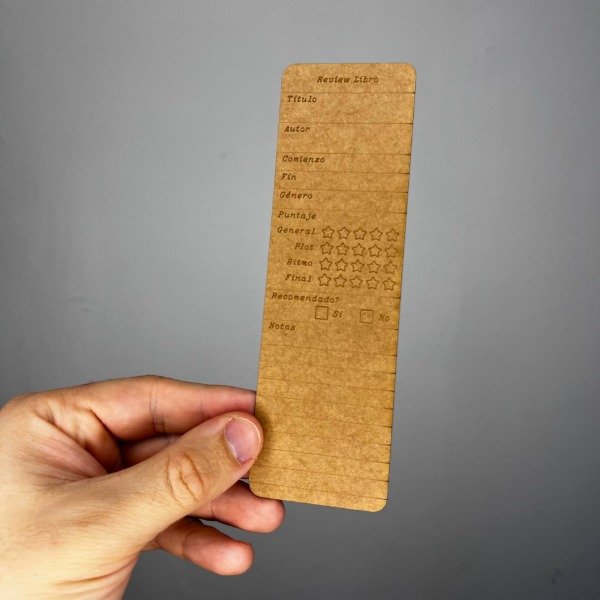 Review Libro
Título
Autor
Comienzo
Fin
Género
Puntaje
General
Plot
Ritmo
Final
Recomendado?
Si No
Notas